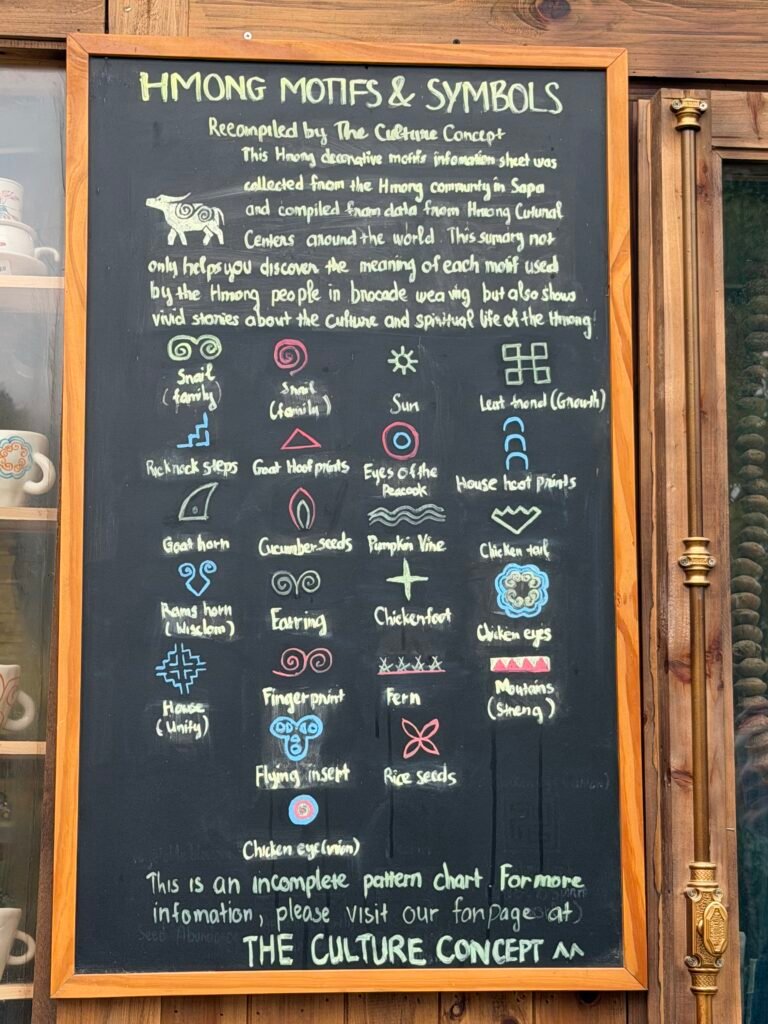 HMONG MOTIFS & SYMBOLS
Recompiled by The Culture Concept
This Hmong decorative motifs infomation sheet was
collected from the Hmong community in Sapa
and compiled from data from Hmong Cutural
Centers around the world. This sumary not
only helps you discover the meaning of each motif used
by the Hmong people in brocade weaving but also shows
vivid stories about the culture and spiritual life of the Hmong
Snail
(family)
Snail
(family)
Sun
(Growth)
steps
Goat Hoof prints
Eyes of the
Peacock
House hoof prints
Goat horn
Cucumber seeds
Pumpkin Vine
Chicken tail
Rams horn
(Wisdom)
Earring
Chicken foot
Chicken eyes
House
(Unity)
Fingerprint
Fern
Moutains
(Streng)
Flying insert
Rice seeds
Chicken eye (union)
This is an incomplete pattern chart. For more
infomation, please visit our fanpage at
THE CULTURE CONCEPT ^^